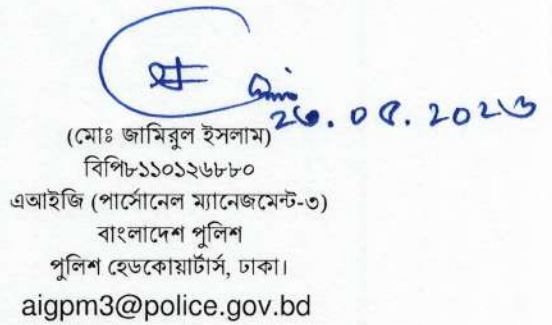 ২৩.০৫.২০২৩
(মোঃ জামিরুল ইসলাম)
বিপি৮১১০১২৬৮৮০
এআইজি (পার্সোনেল ম্যানেজমেন্ট-৩)
বাংলাদেশ পুলিশ
পুলিশ হেডকোয়ার্টার্স, ঢাকা।
aigpm3@police.gov.bd